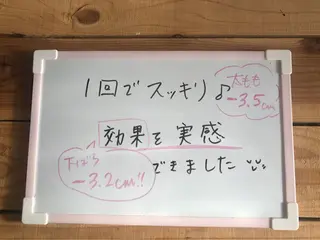 1回でスッキリ♪
太もも
-3.5cm
効果を実感
下っぱら
-3.2cm!!
できました